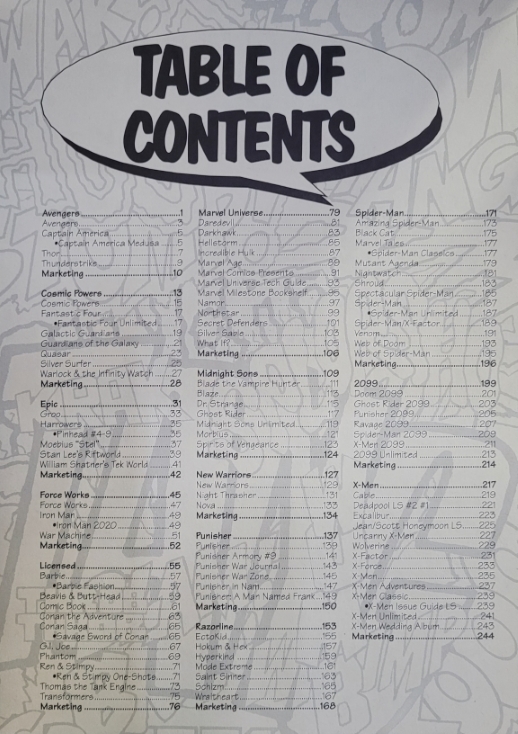 TABLE OF
CONTENTS
Avengers 1
Avengers 3
Captain America 5
•Captain America Medusa 5
Thor 7
Thunderstrike 9
Marketing 10
Cosmic Powers 13
Cosmic Powers 15
Fantastic Four 17
•Fantastic Four Unlimited 17
Galactic Guardians 19
Guardians of the Galaxy 21
Quasar 23
Silver Surfer 25
Warlock & the Infinity Watch 27
Marketing 28
Epic 31
Groo 33
Harrowers 35
•Pinhead #4-9 35
Moebius "Stel" 37
Stan Lee's Riftworld 39
William Shatner's Tek World 41
Marketing 42
Force Works 45
Force Works 47
Iron Man 49
•Iron Man 2020 49
War Machine 51
Marketing 52
Licensed 55
Barbie 57
•Barbie Fashion 57
Beavis & Butt-Head 59
Comic Book 61
Conan the Adventure 63
Conan Saga 65
•Savage Sword of Conan 65
G.I. Joe 67
Phantom 69
Ren & Stimpy 71
•Ren & Stimpy One-Shots 71
Thomas the Tank Engine 73
Transformers 75
Marketing 76
Marvel Universe 79
Daredevil 81
Darkhawk 83
Hellstorm 85
Incredible Hulk 87
Marvel Age 89
Marvel Comics Presents 91
Marvel Universe Tech Guide 93
Marvel Milestone Bookshelf 95
Namor 97
Northstar 99
Secret Defenders 101
Silver Sable 103
What If? 105
Marketing 106
Midnight Sons 109
Blade the Vampire Hunter 111
Blaze 113
Dr. Strange 115
Ghost Rider 117
Midnight Sons Unlimited 119
Morbius 121
Spirits of Vengeance 123
Marketing 124
New Warriors 127
New Warriors 129
Night Thrasher 131
Nova 133
Marketing 134
Punisher 137
Punisher 139
Punisher Armory #9 141
Punisher War Journal 143
Punisher War Zone 145
Punisher in Nam 147
Punisher: A Man Named Frank 149
Marketing 150
Razorline 153
Ectokid 155
Hokum & Hex 157
Hyperkind 159
Mode Extreme 161
Saint Sinner 163
Schizm 165
Wraitheart 167
Marketing 168
Spider-Man 171
Amazing Spider-Man 173
Black Cat 175
Marvel Tales 177
•Spider-Man Classics
Mutant Agenda 179
Nightwatch 181
Shroud 183
Spectacular Spider-Man 185
Spider-Man 187
•Spider-Man Unlimited 187
Spider-Man/X-Factor 189
Venom 191
Web of Doom 193
Web of Spider-Man 195
Marketing 196
2099 199
Doom 2099 201
Ghost Rider 2099 203
Punisher 2099 205
Ravage 2099 207
Spider-Man 2099 209
X-Men 2099 211
2099 Unlimited 213
Marketing 214
X-Men 217
Cable 219
Deadpool LS #2 #1 221
Excalibur 223
Jean/Scott Honeymoon LS 225
Uncanny X-Men 227
Wolverine 229
X-Factor 231
X-Force 233
X-Men 235
X-Men Adventures 237
X-Men Classic 239
•X-Men Issue Guide LS 239
X-Men Unlimited 241
X-Men Wedding Album 243
Marketing 244